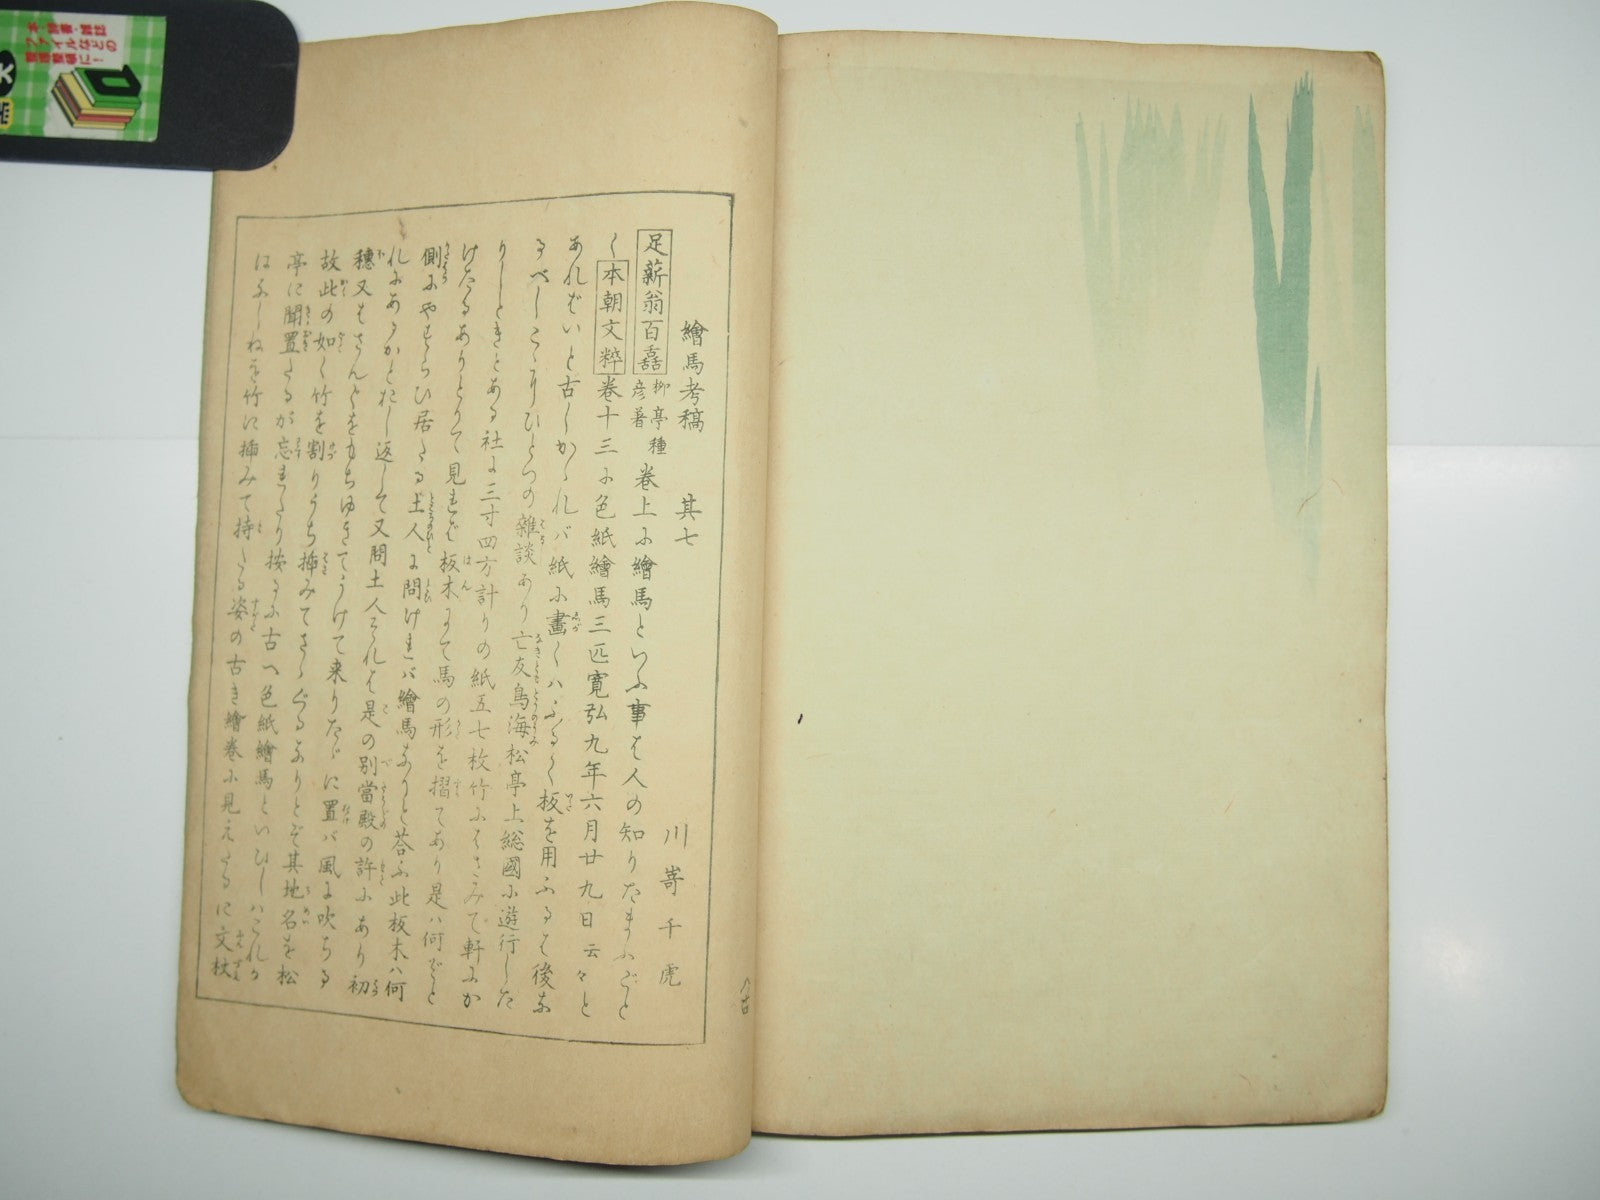 繪馬考稿　其七　川嵜千虎
足薪翁百嚞 柳亭種彦著 卷上に繪馬といふ事は人の知りたまふごと
く本朝文粹卷十三に色紙繪馬三匹寛弘九年六月廿九日云々と
あればいと古しかゝれバ紙に畫くハふるく板を用ふるは後な
るべしこゝにひとつの雜談あり亡友鳥海松亭上総國に遊行した
りしときとある社に三寸四方計りの紙五七枚竹にはさみて軒にか
けたるありとりて見れば板木にて馬の形を摺てあり是ハ何ぞと
側にやすらひ居たる土人に問けれバ繪馬なりと荅ふ此板木ハ何
れにあるかとおし返して又問土人こたれは是の別當殿の許にあり初
穗又はさんぐをもちゆきてうけて来りたゞに置バ風に吹ちる
故此の如く竹を割りうち揷みてさゝぐるなりとぞ其地名を松
亭に聞置たるが忘れたり按るに古へ色紙繪馬といひしハこれか
はふしねを竹に揷みて持たる姿の古き繪卷に見えたるに文杖